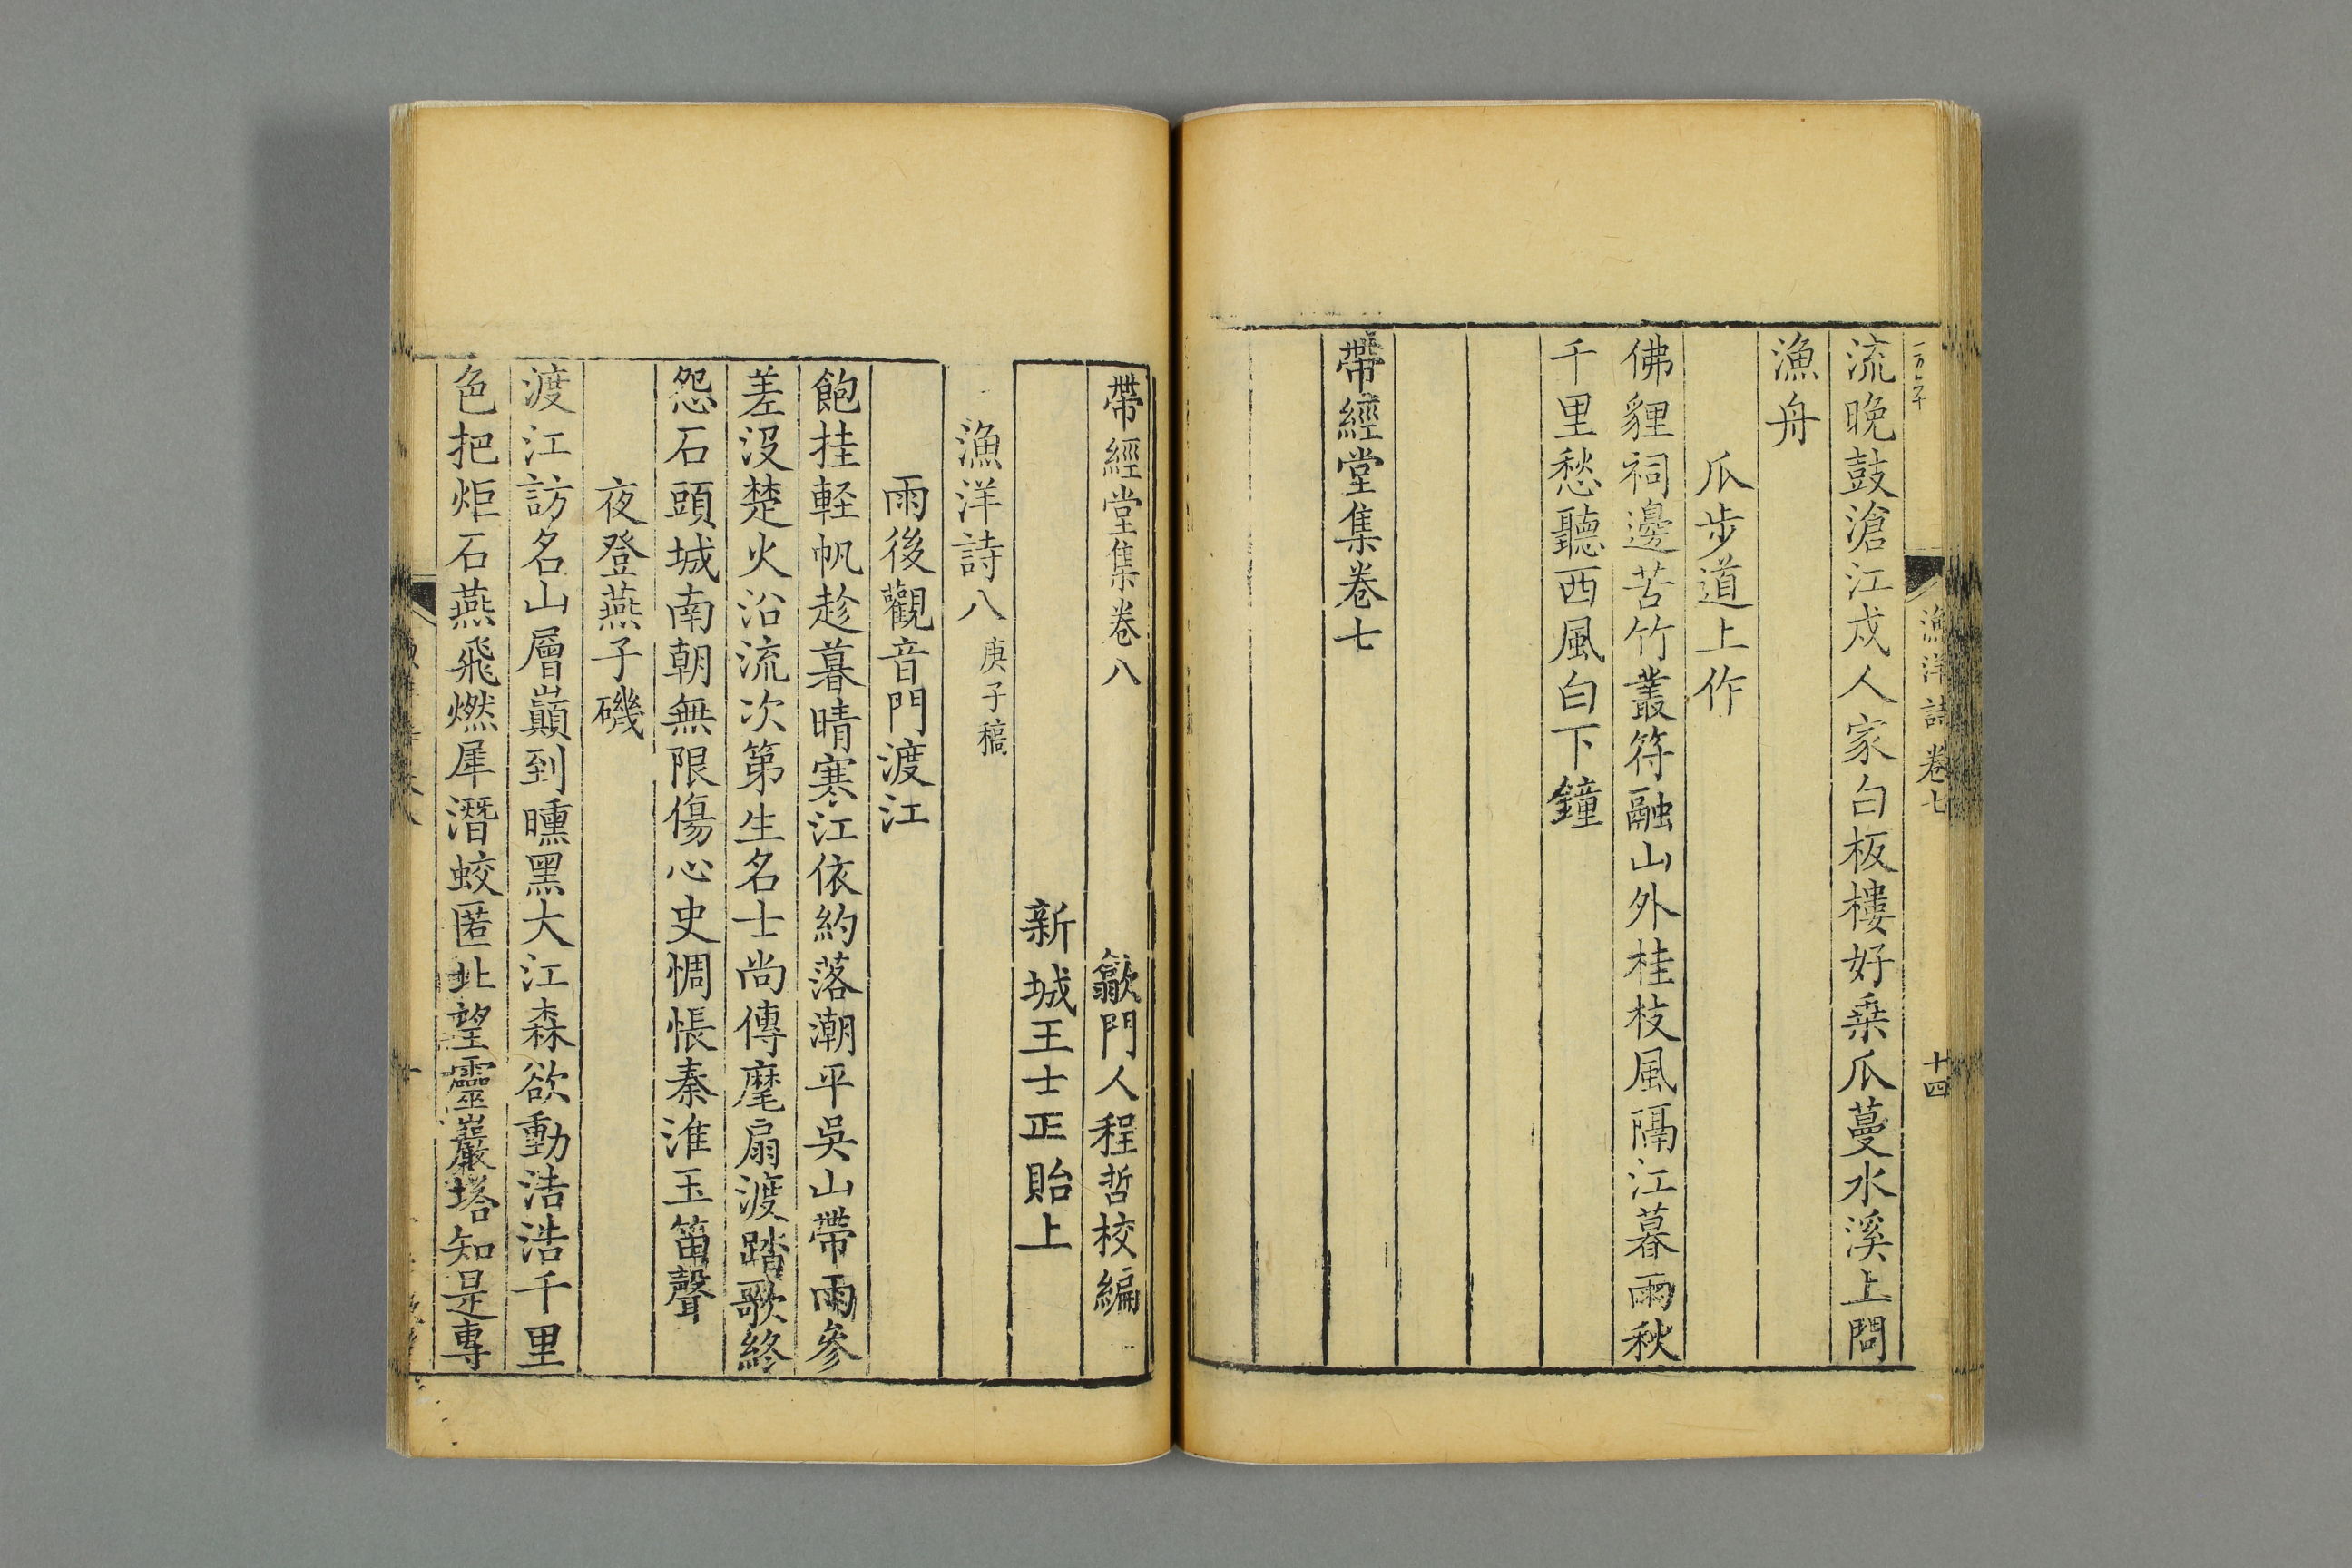 流晚鼓滄江戍人家白板樓好乗瓜蔓水溪上問
漁舟
瓜步道上作
佛貍祠邊苦竹叢符融山外桂枝風隔江暮雨秋
千里愁聽西風白下鐘
帶經堂集卷七
漁洋詩 卷七
十四
帶經堂集卷八
歙門人程哲校編
新城王士正貽上
漁洋詩八 庚子稿
雨後觀音門渡江
飽挂軽帆趁暮晴寒江依約落潮平吳山帶雨參
差沒楚火沿流次第生名士尚傳麾扇渡踏歌終
怨石頭城南朝無限傷心史惆悵秦淮玉笛聲
夜登燕子磯
渡江訪名山層巔到曛黑大江森欲動浩浩千里
色把炬石燕飛燃犀潛蛟匿北望靈巖塔知是專